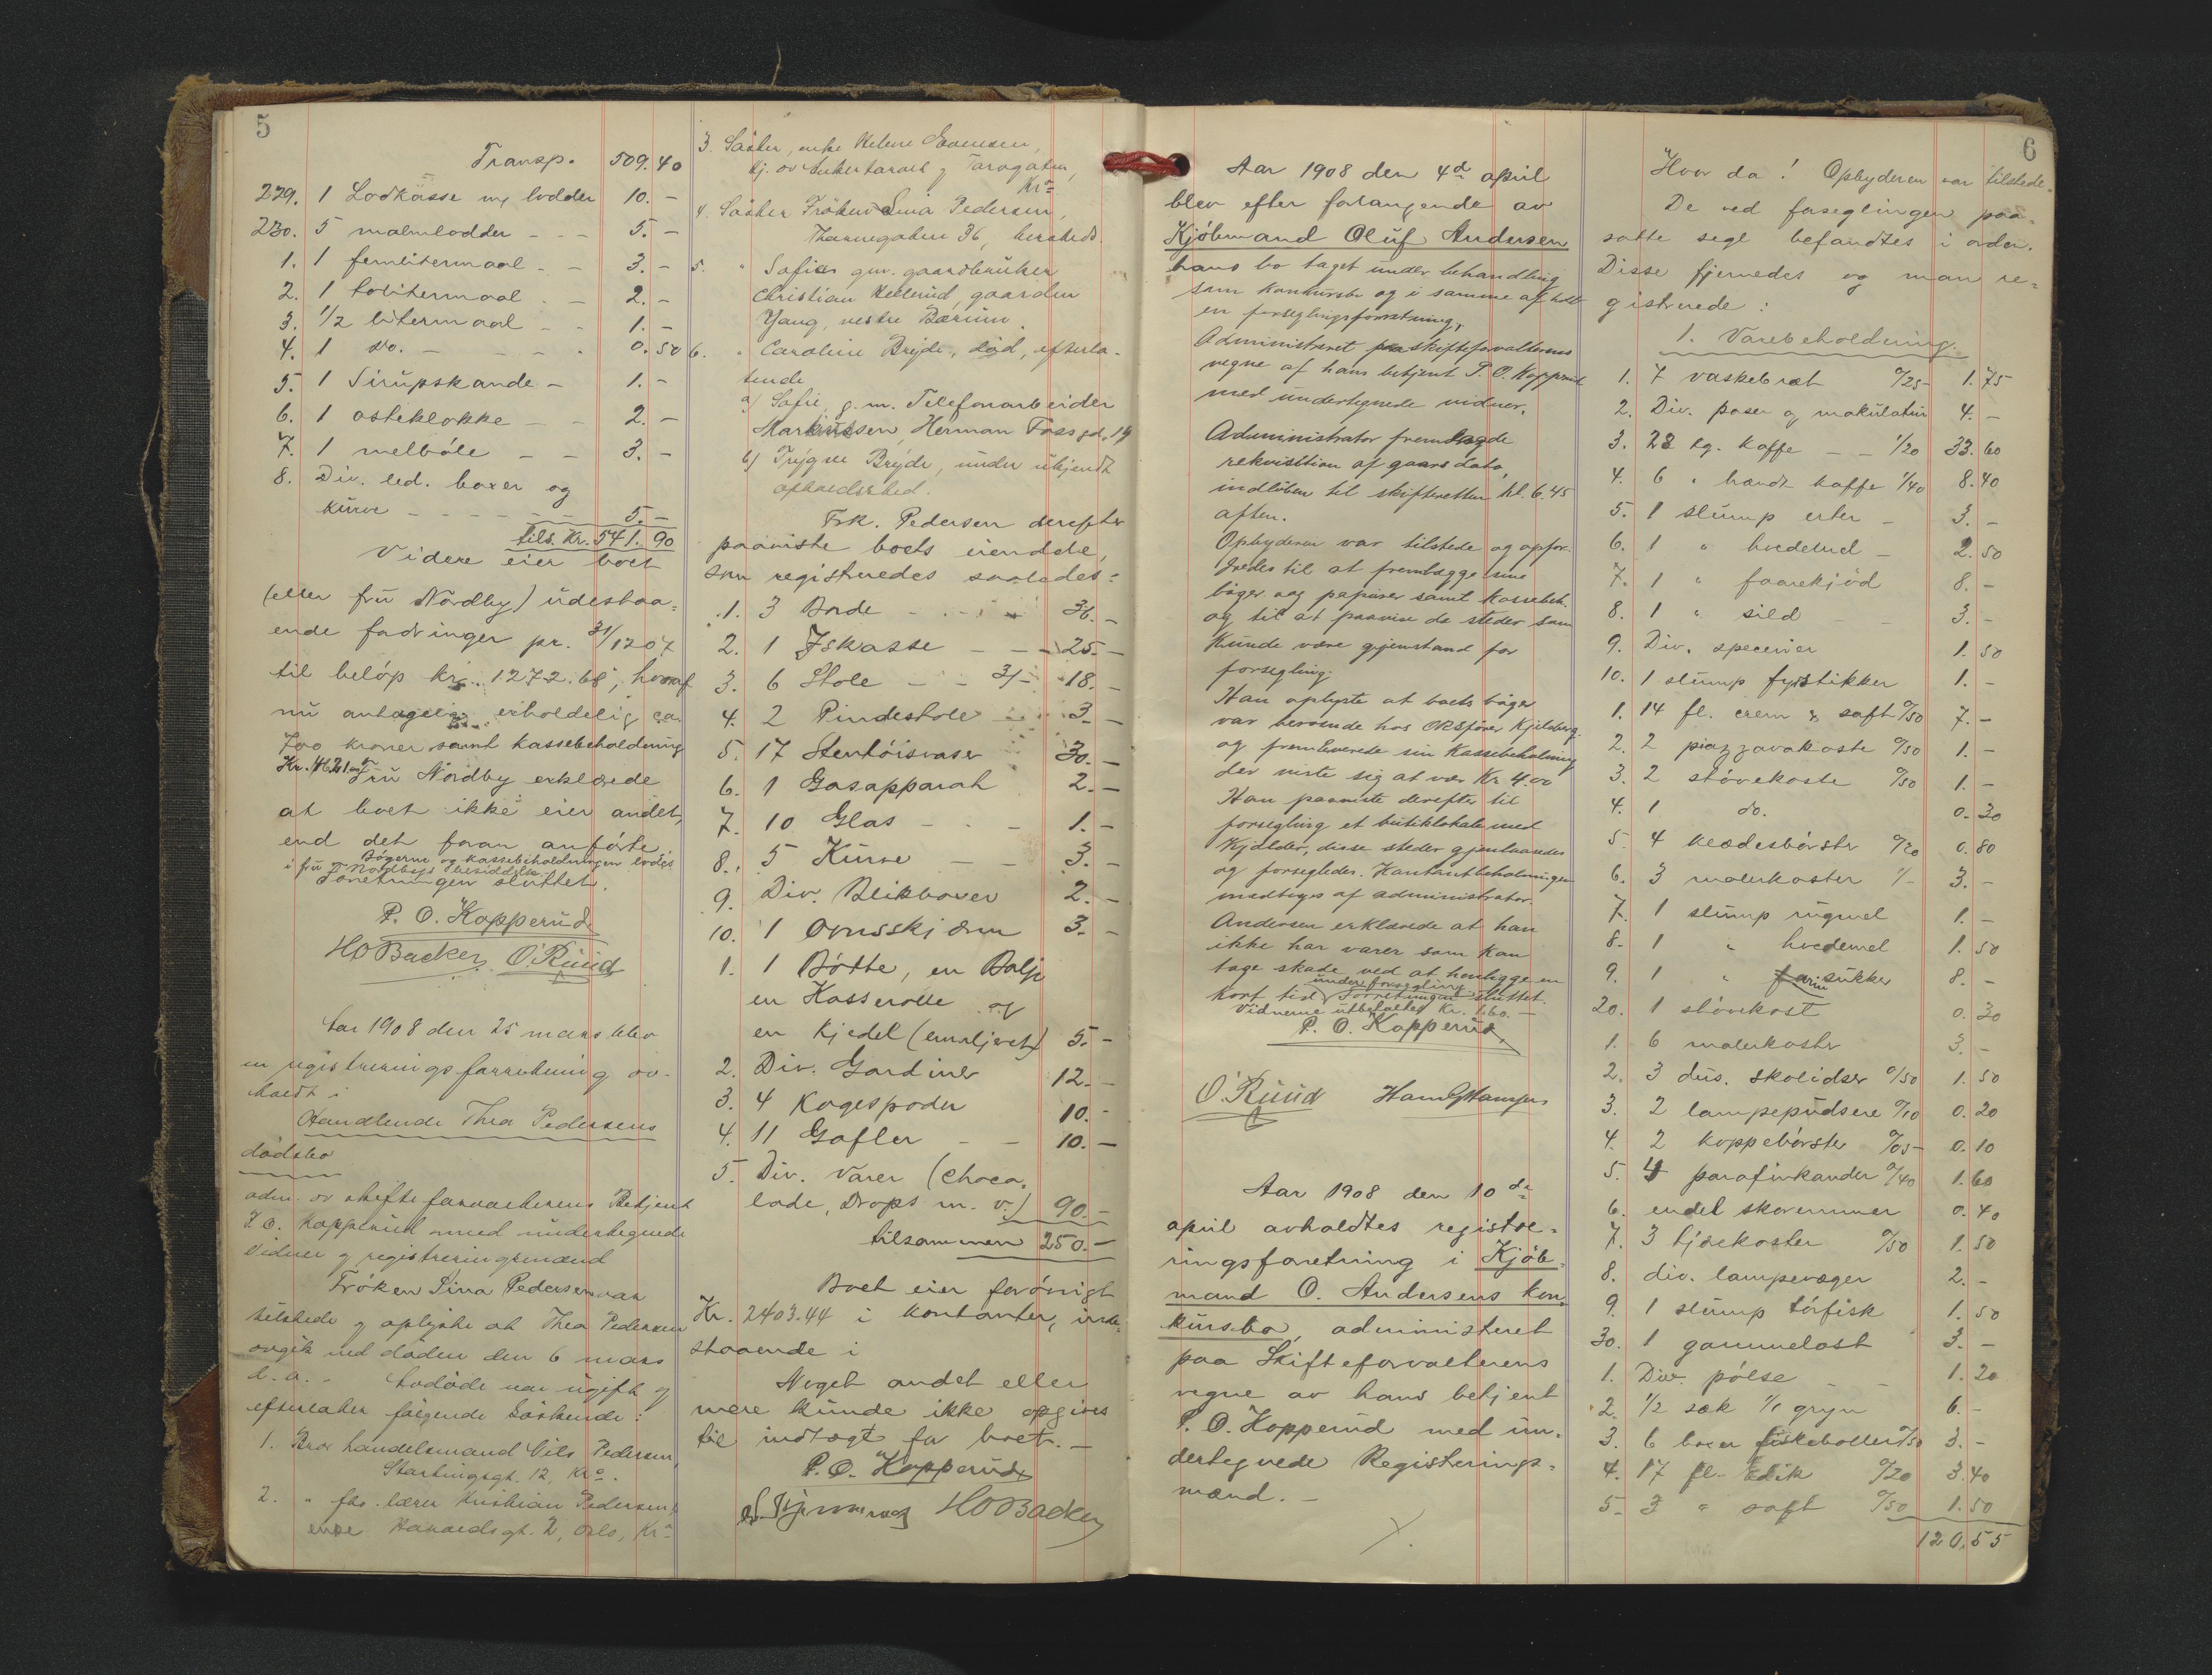 5
Transp. 509.40
229. 1 Lodkasse m/ lodder 10.-
230. 5 malmlodder - - 5.-
1. 1 femlitermaal - - 3.-
2. 1 tolitermaal - - 2.-
3. 1/2 litermaal - - 1.-
4. 1 do. - - - 0.50
5. 1 Sirupskande - 1.-
6. 1 osteklokke - - 2.-
7. 1 melböle - - 3.-
8. Div. led. boxer og
kurve - - - - 5.-
tils. Kr. 541.90
Videre eier boet
(eller fru Nordby) udestaa-
ende fordringer pr. 31/12 07
til beløp kr. 1272.68, hvoraf
nu antagelig erholdelig ca.
700 kroner samt kassebeholdning
Fru Nordby erklærede
at boet ikke eier andet,
end det foran anførte.
Bøgerne og kassebeholdningen lodes
i fru Nordbys besiddelse.
Forretningen sluttet.
P. O. Kopperud
HO Backer O. Ruud
Aar 1908 den 25 mars blev
en registreringsforretning av-
holdt i
Handlende Thea Pedersens
dødsbo
adm. av skifteforvalterens Betjent
P. O. Kopperud med undertegnede
vidner og registreringsmænd
Frøken Lina Pedersen var
tilstede og oplyste at Thea Pedersen
avgik ved døden den 6 mars
d. a. - Avdøde var ugift og
efterlater følgende Søskende:
1. Bror handelsmand Nils Pedersen,
12, Kra.
2. " Kristian Pedersens
enke gt. 2, Oslo, Kra
3. Søster, enke Helene Evensen,
hj. av Akertorvet og Torvgaten,
Kra
4. Søster Frøken Lina Pedersen,
36, hersteds.
5. " Sofie gm. gaardbruker
Christian Hellerud, gaarden
vestre Bærum.
6. " Caroline Bryde, død, efterla-
tende
a) Sofie, g. m. Telefonarbeider
Markussen, Herman Foss gd. 19
b) Trygve Bryde, under ukjendt
opholdssted.
Frk. Pedersen derefter
paaviste boets eiendele,
som registreredes saaledes:
1. 3 Borde - - - 36.-
2. 1 Iskasse - - - 25.-
3. 6 Stole - - 3/- 18.-
4. 2 Pindestole - - 3.-
5. 17 Stentøisvaser 30.-
6. 1 Gasapparat 2.-
7. 10 Glas - - - 1.-
8. 5 Kurve - - 3.-
9. Div. Blikboxer 2.-
10. 1 Ovnsskjærm 3.-
1. 1 Bøtte, en Balje
en Kasserolle og
en Kjedel (emaljeret) 5.-
2. Div. Gardiner 12.-
3. 4 Kagespader 10.-
4. 11 Gafler - - 10.-
5. Div. Varer (Choco-
lade, Drops m. v.) 90.-
tilsammen 250.-
Boet eier forøvrigt
Kr. 2403.44 i kontanter, inde-
staaende i
Noget andet eller
mere kunde ikke opgives
til indtægt for boet. -
P. O. Kopperud
HO Backer
Aar 1908 den 4d april
blev efter forlangende av
Kjøbmand Oluf Andersen
hans bo taget under behandling
som konkursbo og i samme afholdt
en forseglingsforretning,
Administreret paa skifteforvalterens
vegne af hans betjent P. O. Kopperud
med undertegnede vidner.
Administrator fremlagde
rekvisition af gaars dato,
indløben til skifteretten kl. 6.45
aften.
Opbyderen var tilstede og opfor-
dredes til at fremlægge sine
bøger og papirer samt kassebeh.
og til at paavise de steder som
kunde være gjenstand for
forsegling.
Han oplyste at boets bøger
var beroende hos Kjelsberg
og fremleverede sin Kassebeholdning
der viste sig at være Kr. 4.00
Han paaviste derefter til
forsegling et butiklokale med
Kjælder, disse steder gjenlaasedes
og forsegledes. Kontantbeholdningen
medtoges af administrator.
Andersen erklærede at han
ikke har varer som kan
tage skade ved at henligge en
kort tid under forsegling. Forretningen sluttet.
Vidnerne utbetaltes Kr. 1.60. -
P. O. Kopperud
O. Ruud
Aar 1908 den 10de
april avholdtes registre-
ringsforretning i Kjøb-
mand O. Andersens kon-
kursbo, administreret
paa Skifteforvalterens
vegne av hans betjent
P. O. Kopperud med un-
dertegnede Registrerings-
mænd. -
6
Hvor da! Opbyderen var tilstede.
De ved forseglingen paa-
satte segl befandtes i orden.
Disse fjernedes og man re-
gistrerede:
1. Varebeholdning.
1. 7 vaskebræt 0/25 1.75
2. Div. poser og makulatur 4.-
3. 28 kg. kaffe - - 1/20 33.60
4. 6 " brændt kaffe 1/40 8.40
5. 1 slump erter - 3.-
6. 1 " hvedemel - 2.50
7. 1 " faarekjød 8.-
8. 1 " sild - - 3.-
9. Div. specerier 1.50
10. 1 slump fyrstikker 1.-
1. 14 fl. crem & saft 0/50 7.-
2. 2 piazzavakoste 0/50 1.-
3. 2 støvekoste 0/50 1.-
4. 1 do. 0.30
5. 4 klædesbørster 0/20 0.80
6. 3 malerkoster 1/- 3.-
7. 1 slump rugmel 1.-
8. 1 " hvedemel 1.50
9. 1 " farin sukker 8.-
20. 1 støvekost 0.30
1. 6 malerkoster 3.-
2. 3 dus. skolidser 0/50 1.50
3. 2 lampepudsere 0/10 0.20
4. 2 koppebørster 0/05 0.10
5. 4 parafinkander 0/40 1.60
6. endel skoremmer 0.40
7. 3 tjærekoster 0/50 1.50
8. div. lampevæger 2.-
9. 1 slump tørfisk 1.50
30. 1 gammelost 3.-
1. Div. pølse - - 1.20
2. 1/2 sæk 1/1 gryn 6.-
3. 6 boxer fiskeboller 0/50 3.-
4. 17 fl. Edik 0/20 3.40
5. 3 " saft 0/50 1.50
120.55